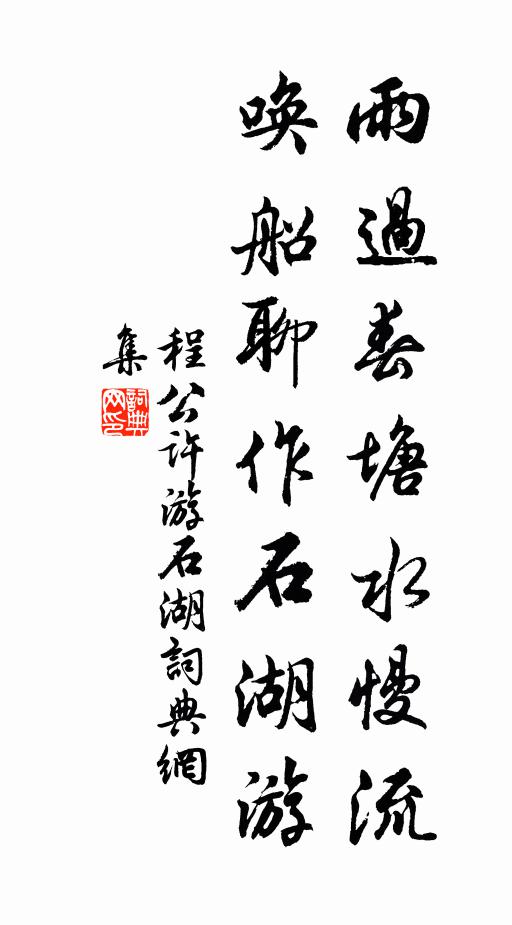 雨過春塘水慢流
喚船聊作石湖游
程公許游石湖詞典網
集
詞典網印